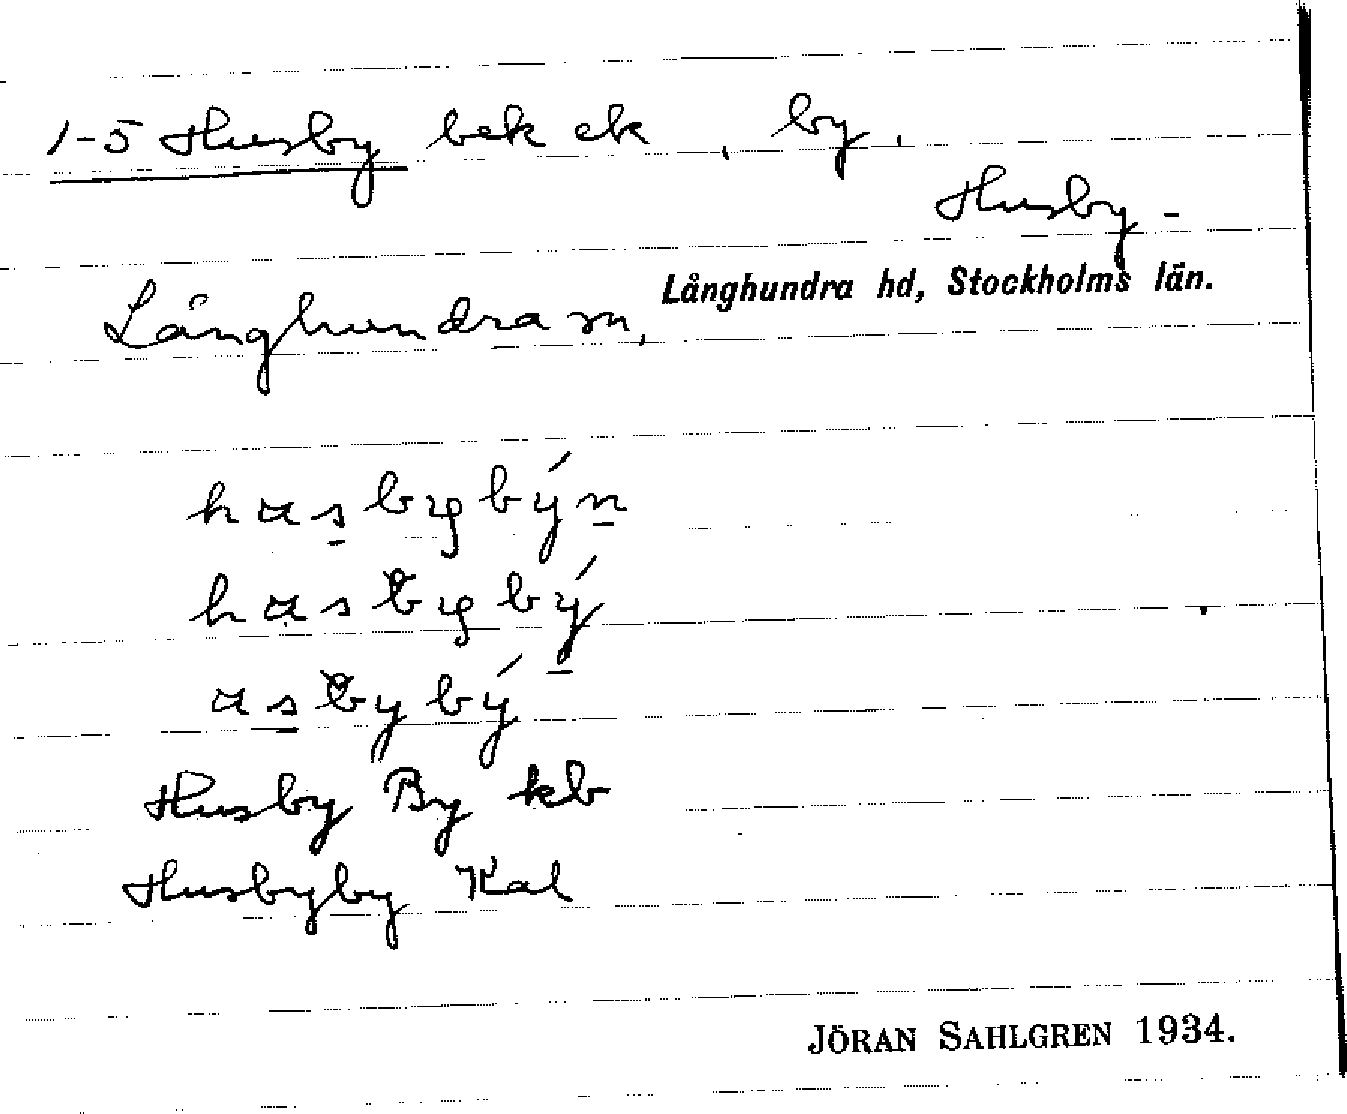 1-5 Husby bek ek , by,
Husby-
Långhundra sn, Långhundra hd, Stockholms län.
hasbybýn
hasbybý
asbybý
Husby By kb
Husbyby Kal
JÖRAN SAHLGREN 1934.